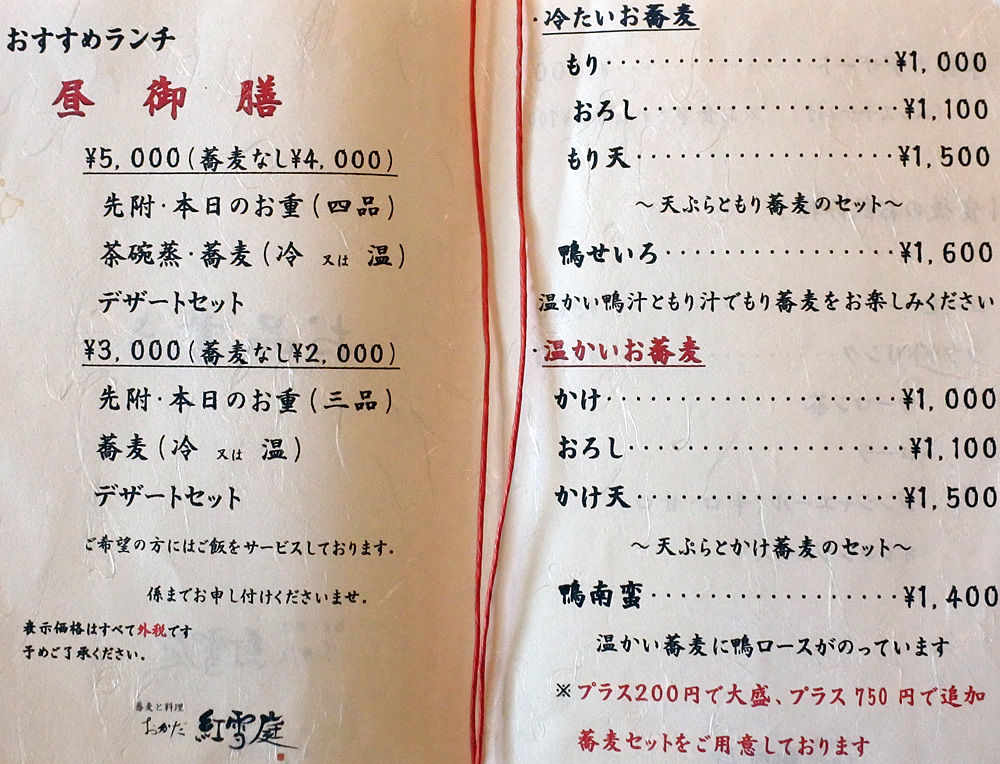 おすすめランチ
昼 御 膳
¥5,000(蕎麦なし¥4,000)
先附・本日のお重(四品)
茶碗蒸・蕎麦(冷 又は 温)
デザートセット
¥3,000(蕎麦なし¥2,000)
先附・本日のお重(三品)
蕎麦(冷 又は 温)
デザートセット
ご希望の方にはご飯をサービスしております。
係までお申し付けくださいませ。
表示価格はすべて外税です
予めご了承ください。
蕎麦と料理
おかだ 紅雪庭
・冷たいお蕎麦
もり・・・・・・・・・・・・・・・・・・・・¥1,000
おろし・・・・・・・・・・・・・・・・・・¥1,100
もり天・・・・・・・・・・・・・・・・・・¥1,500
～天ぷらともり蕎麦のセット～
鴨せいろ・・・・・・・・・・・・・・・・¥1,600
温かい鴨汁ともり汁でもり蕎麦をお楽しみください
・温かいお蕎麦
かけ・・・・・・・・・・・・・・・・・・・・・¥1,000
おろし・・・・・・・・・・・・・・・・・・・¥1,100
かけ天・・・・・・・・・・・・・・・・・・¥1,500
～天ぷらとかけ蕎麦のセット～
鴨南蛮・・・・・・・・・・・・・・・・・・¥1,400
温かい蕎麦に鴨ロースがのっています
※プラス200円で大盛、プラス750円で追加
蕎麦セットをご用意しております